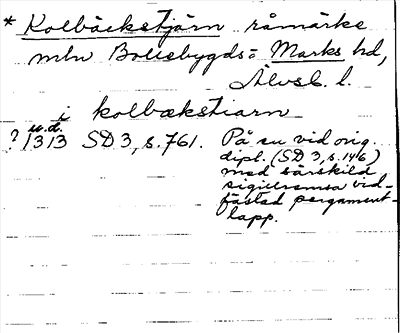 * Kolbäckstjärn råmärke
mln Bollebygds o Marks hd,
Älvsb. l.
i kolbækstiarn
u.d.
? 1313 SD 3, s. 761. På en vid orig.
dipl. (SD 3, s. 146)
med särskild
sigillremsa vid-
fästad pergament-
lapp.